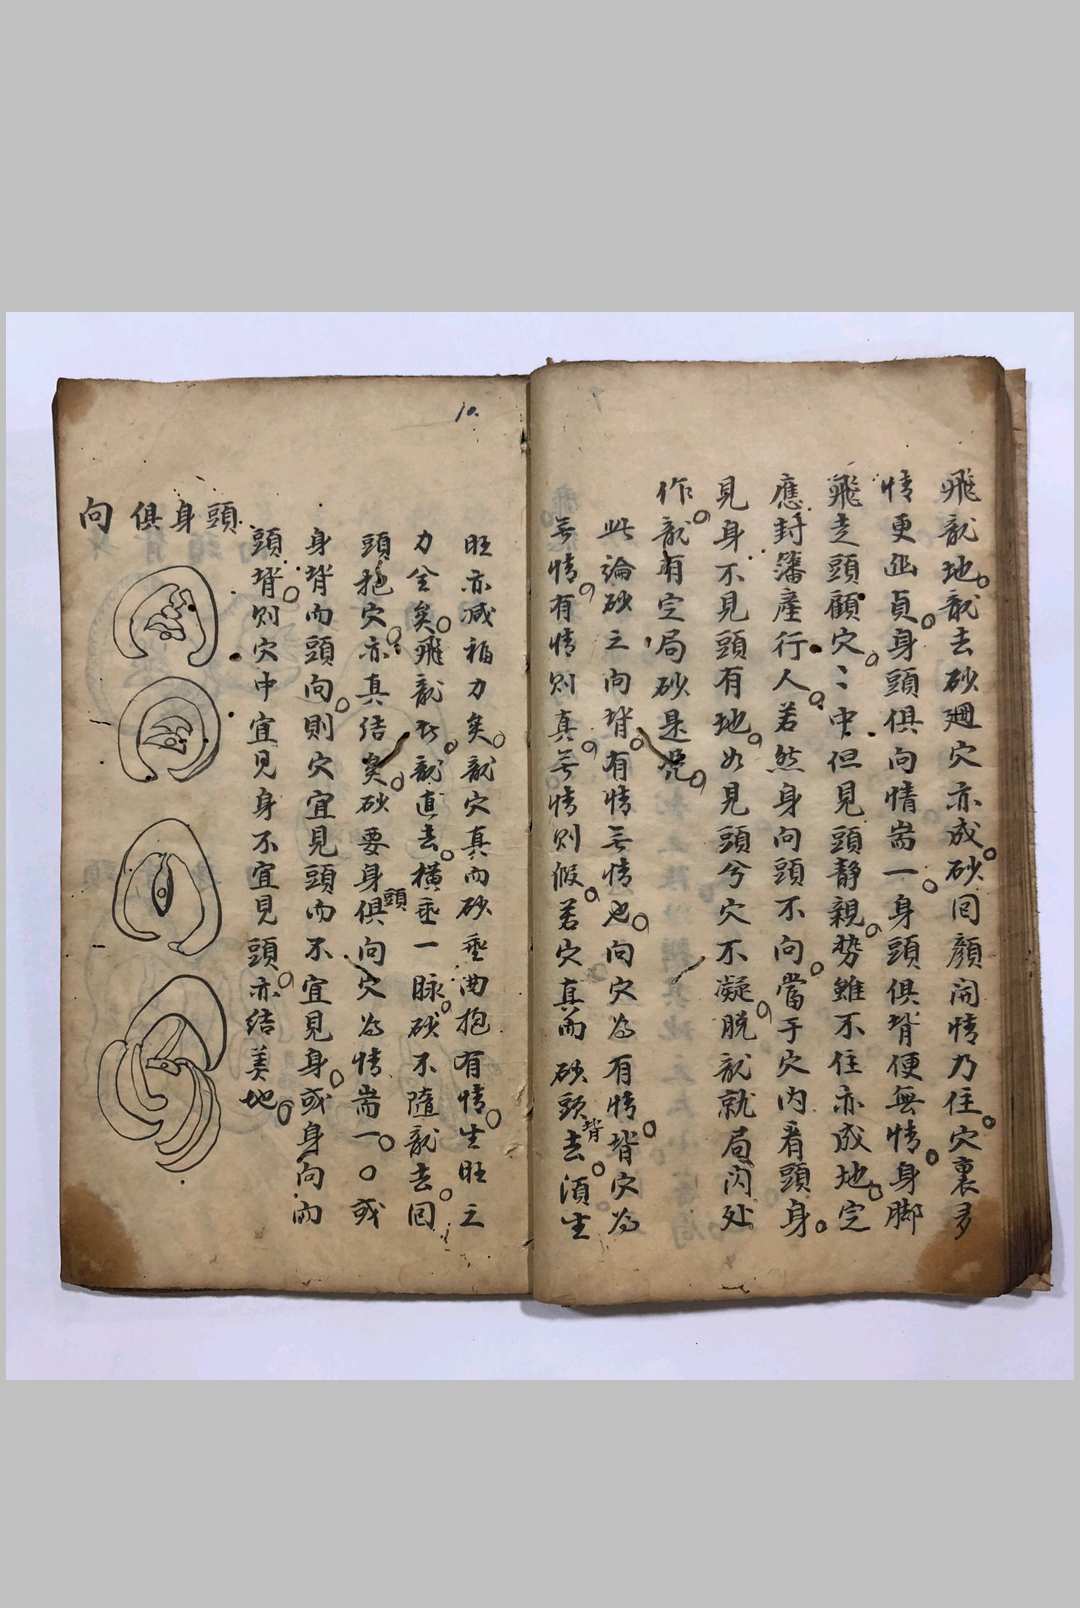 飛龍地。龍去砂廻穴亦成。砂囘顔閙情乃住。穴裏多
情更迤貞。身頭俱向情耑一。身頭俱背便無情。身脚
飛走頭顧穴。〻中但見頭静親。势雖不住亦成地。定
應封藩產行人。若然身向頭不向。當于穴内看頭身。
見身不見頭有地。如見頭兮穴不凝。脱龍就局閃处
作。龍有定局砂是凭。
此論砂之向背。有情無情也。向穴為有情。背穴為
無情。有情則真。無情則假。若穴真而砂頭背去。須生
旺亦减福力矣。龍穴真而砂垂曲抱有情。生旺之
力全矣。飛龍 。龍直去。橫垂一脉。砂不隨龍去。囘
頭抱穴。亦真结矣。砂要身頭俱向穴為情耑一。○或
身背而頭向。則穴宜見頭而不宜見身。或身向而
頭背。则穴中宜見身不宜見頭。亦结美地。
頭身俱向
10.